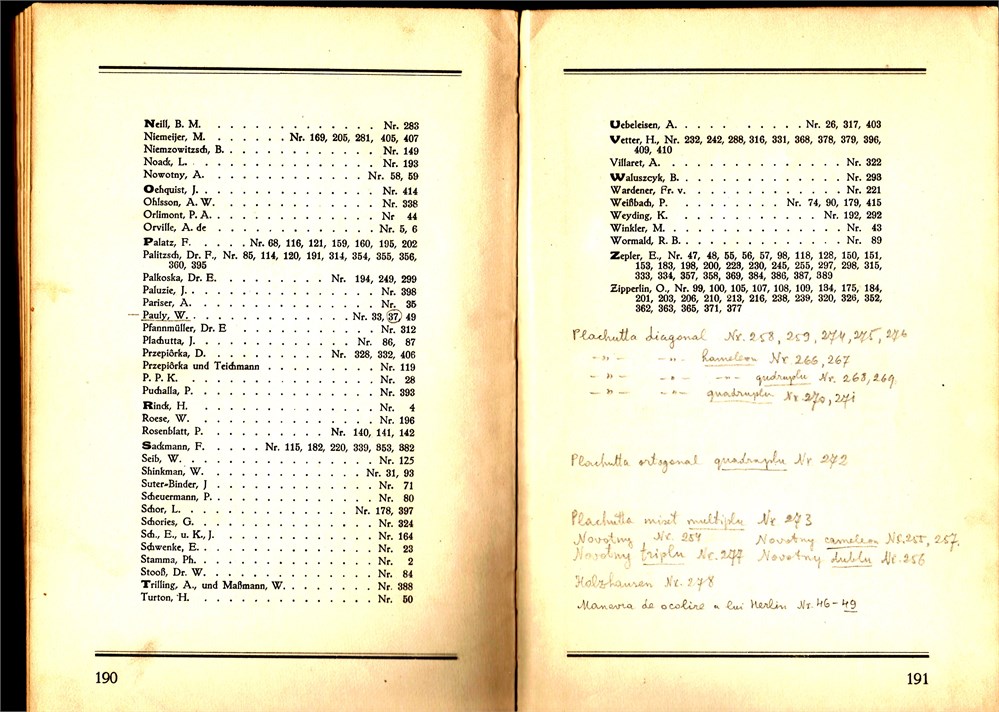 Neill, B. M. . . . . . . . . . . . . . Nr. 283
Niemeijer, M. . . . . . . Nr. 169, 205, 281, 405, 407
Niemzowitzsch, B. . . . . . . . . . . . . Nr. 149
Noack, L. . . . . . . . . . . . . . . . Nr. 193
Nowotny, A. . . . . . . . . . . . . . Nr. 58, 59
Oehquist, J. . . . . . . . . . . . . . . Nr. 414
Ohlsson, A. W. . . . . . . . . . . . . . Nr. 338
Orlimont, P. A. . . . . . . . . . . . . . Nr 44
Orville, A. de . . . . . . . . . . . . . Nr. 5, 6
Palatz, F. . . . . . Nr. 68, 116, 121, 159, 160, 195, 202
Palitzsch, Dr. F., Nr. 85, 114, 120, 191, 314, 354, 355, 356,
360, 395
Palkoska, Dr. E. . . . . . . . . . Nr. 194, 249, 299
Paluzie, J. . . . . . . . . . . . . . . . Nr. 398
Pariser, A. . . . . . . . . . . . . . . . Nr. 35
Pauly, W. . . . . . . . . . . . . . Nr. 33, 37, 49
Pfannmüller, Dr. E . . . . . . . . . . . . Nr. 312
Plachutta, J. . . . . . . . . . . . . . Nr. 86, 87
Przepiôrka, D. . . . . . . . . . . Nr. 328, 332, 406
Przepiôrka und Teichmann . . . . . . . . . Nr. 119
P. P. K. . . . . . . . . . . . . . . . . Nr. 28
Puchalla, P. . . . . . . . . . . . . . . . Nr. 393
Rinck, H. . . . . . . . . . . . . . . . Nr. 4
Roese, W. . . . . . . . . . . . . . . . Nr. 196
Rosenblatt, P. . . . . . . . . . . Nr. 140, 141, 142
Sackmann, F. . . . . Nr. 115, 182, 220, 339, 353, 382
Seib, W. . . . . . . . . . . . . . . . . Nr. 125
Shinkman, W. . . . . . . . . . . . . . Nr. 31, 93
Suter-Binder, J . . . . . . . . . . . . . Nr. 71
Scheuermann, P. . . . . . . . . . . . . . Nr. 80
Schor, L. . . . . . . . . . . . . . Nr. 178, 397
Schories, G. . . . . . . . . . . . . . . Nr. 324
Sch., E., u. K., J. . . . . . . . . . . . . Nr. 164
Schwenke, E. . . . . . . . . . . . . . . Nr. 23
Stamma, Ph. . . . . . . . . . . . . . . Nr. 2
Stooß, Dr. W. . . . . . . . . . . . . . Nr. 84
Trilling, A., und Maßmann, W. . . . . . . . Nr. 388
Turton, H. . . . . . . . . . . . . . . . Nr. 50
190
Uebeleisen, A. . . . . . . . . . . Nr. 26, 317, 403
Vetter, H., Nr. 232, 242, 288, 316, 331, 368, 378, 379, 396,
409, 410
Villaret, A. . . . . . . . . . . . . . . . Nr. 322
Waluszcyk, B. . . . . . . . . . . . . . . Nr. 293
Wardener, Fr. v. . . . . . . . . . . . . . Nr. 221
Weißbach, P. . . . . . . . . . Nr. 74, 90, 179, 415
Weyding, K. . . . . . . . . . . . . Nr. 192, 292
Winkler, M. . . . . . . . . . . . . . . . Nr. 43
Wormald, R. B. . . . . . . . . . . . . . Nr. 89
Zepler, E., Nr. 47, 48, 55, 56, 57, 98, 118, 128, 150, 151,
153, 183, 198, 200, 223, 230, 245, 255, 297, 298, 315,
333, 334, 357, 358, 369, 384, 386, 387, 389
Zipperlin, O., Nr. 99, 100, 105, 107, 108, 109, 134, 175, 184,
201, 203, 206, 210, 213, 216, 238, 239, 320, 326, 352,
362, 363, 365, 371, 377
Plachutta diagonal Nr. 258, 259, 274, 275, 276
-"- -"- kameleon Nr 266, 267
-"- -"- --- quadruplu Nr. 268, 269
-"- -"- quadruplu Nr. 270, 271
Plachutta ortogonal quadruplu Nr 272
Plachutta mixt multiplu Nr 273
Novotny Nr. 254 Novotny cameleon Nr. 255, 257.
Novotny triplu Nr. 277 Novotny dublu Nr. 256
Holzhausen Nr. 278
Manevra de ocolire a lui Herlin Nr. 46-49
191